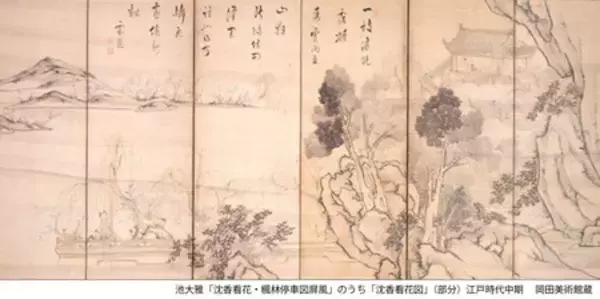 一枝濃艶
露凝
香雲雨巫
山枉
断腸借問
漢宮
誰得似可
憐飛
燕倚新
粧
池大雅「沈香看花・楓林停車図屏風」のうち「沈香看花図」(部分)江戸時代中期 岡田美術館蔵